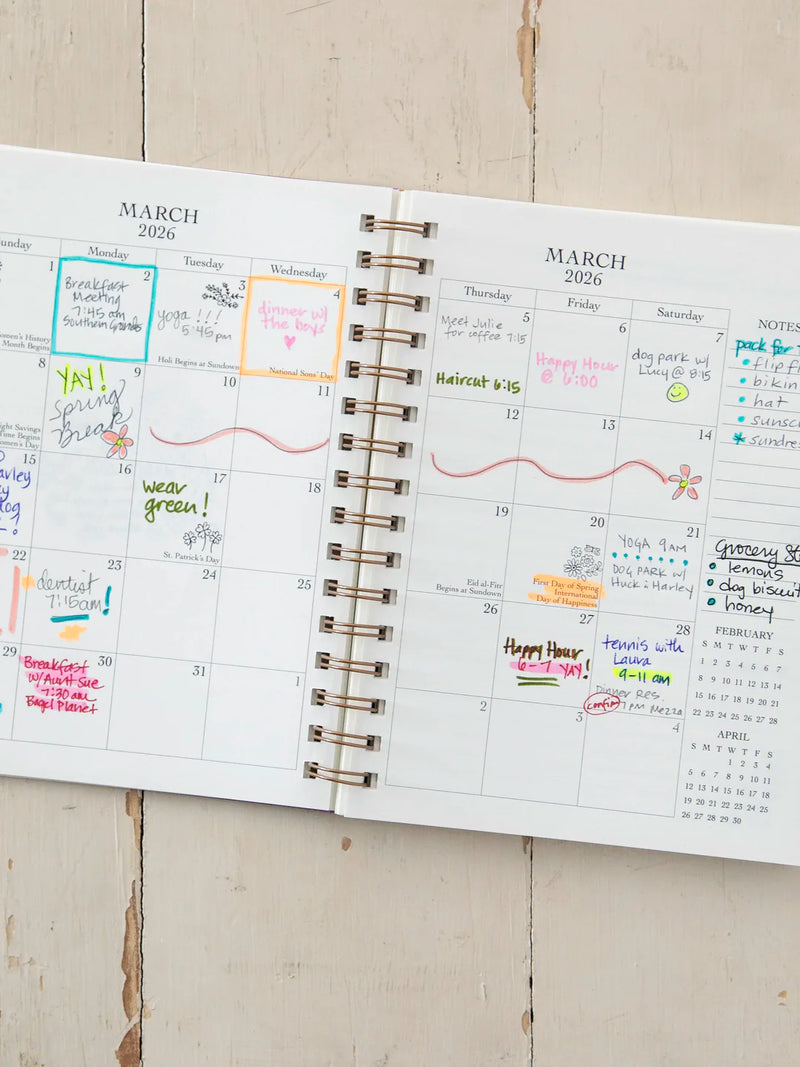 MARCH
2026
Monday
Tuesday
Wednesday
1
2
Breakfast
Meeting
7:45 am
Southern Grounds
3
yoga !!!
5:45 pm
Holi Begins at Sundown
4
dinner w/
the boys
National Sons' Day
Month Begins
8
9
YAY!
Spring
Break
10
11
Time Begins
15
16
17
wear
green!
St. Patrick's Day
18
22
23
dentist
7:15am!
24
25
29
30
Breakfast
w/Aunt Sue
7:30 am
Bagel Planet
31
1
MARCH
2026
Thursday
Friday
Saturday
5
Meet Julie
for coffee 7:15
Haircut 6:15
6
Happy Hour
@ 6:00
7
dog park w/
Lucy @ 8:15
12
13
14
19
Eid al-Fitr
Begins at Sundown
20
First Day of Spring
International
Day of Happiness
21
YOGA 9AM
DOG PARK w/
Huck & Harley
26
27
Happy Hour
6-7 YAY!
28
tennis with
Laura
9-11 am
Dinner Res.
confirm 7 PM Mezza
2
3
4
NOTES
pack for
• flip
•
• hat
•
*
Grocery
• lemons
• dog
• honey
FEBRUARY
S M T W T F S
1 2 3 4 5 6 7
8 9 10 11 12 13 14
15 16 17 18 19 20 21
22 23 24 25 26 27 28
APRIL
S M T W T F S
1 2 3 4
5 6 7 8 9 10 11
12 13 14 15 16 17 18
19 20 21 22 23 24 25
26 27 28 29 30